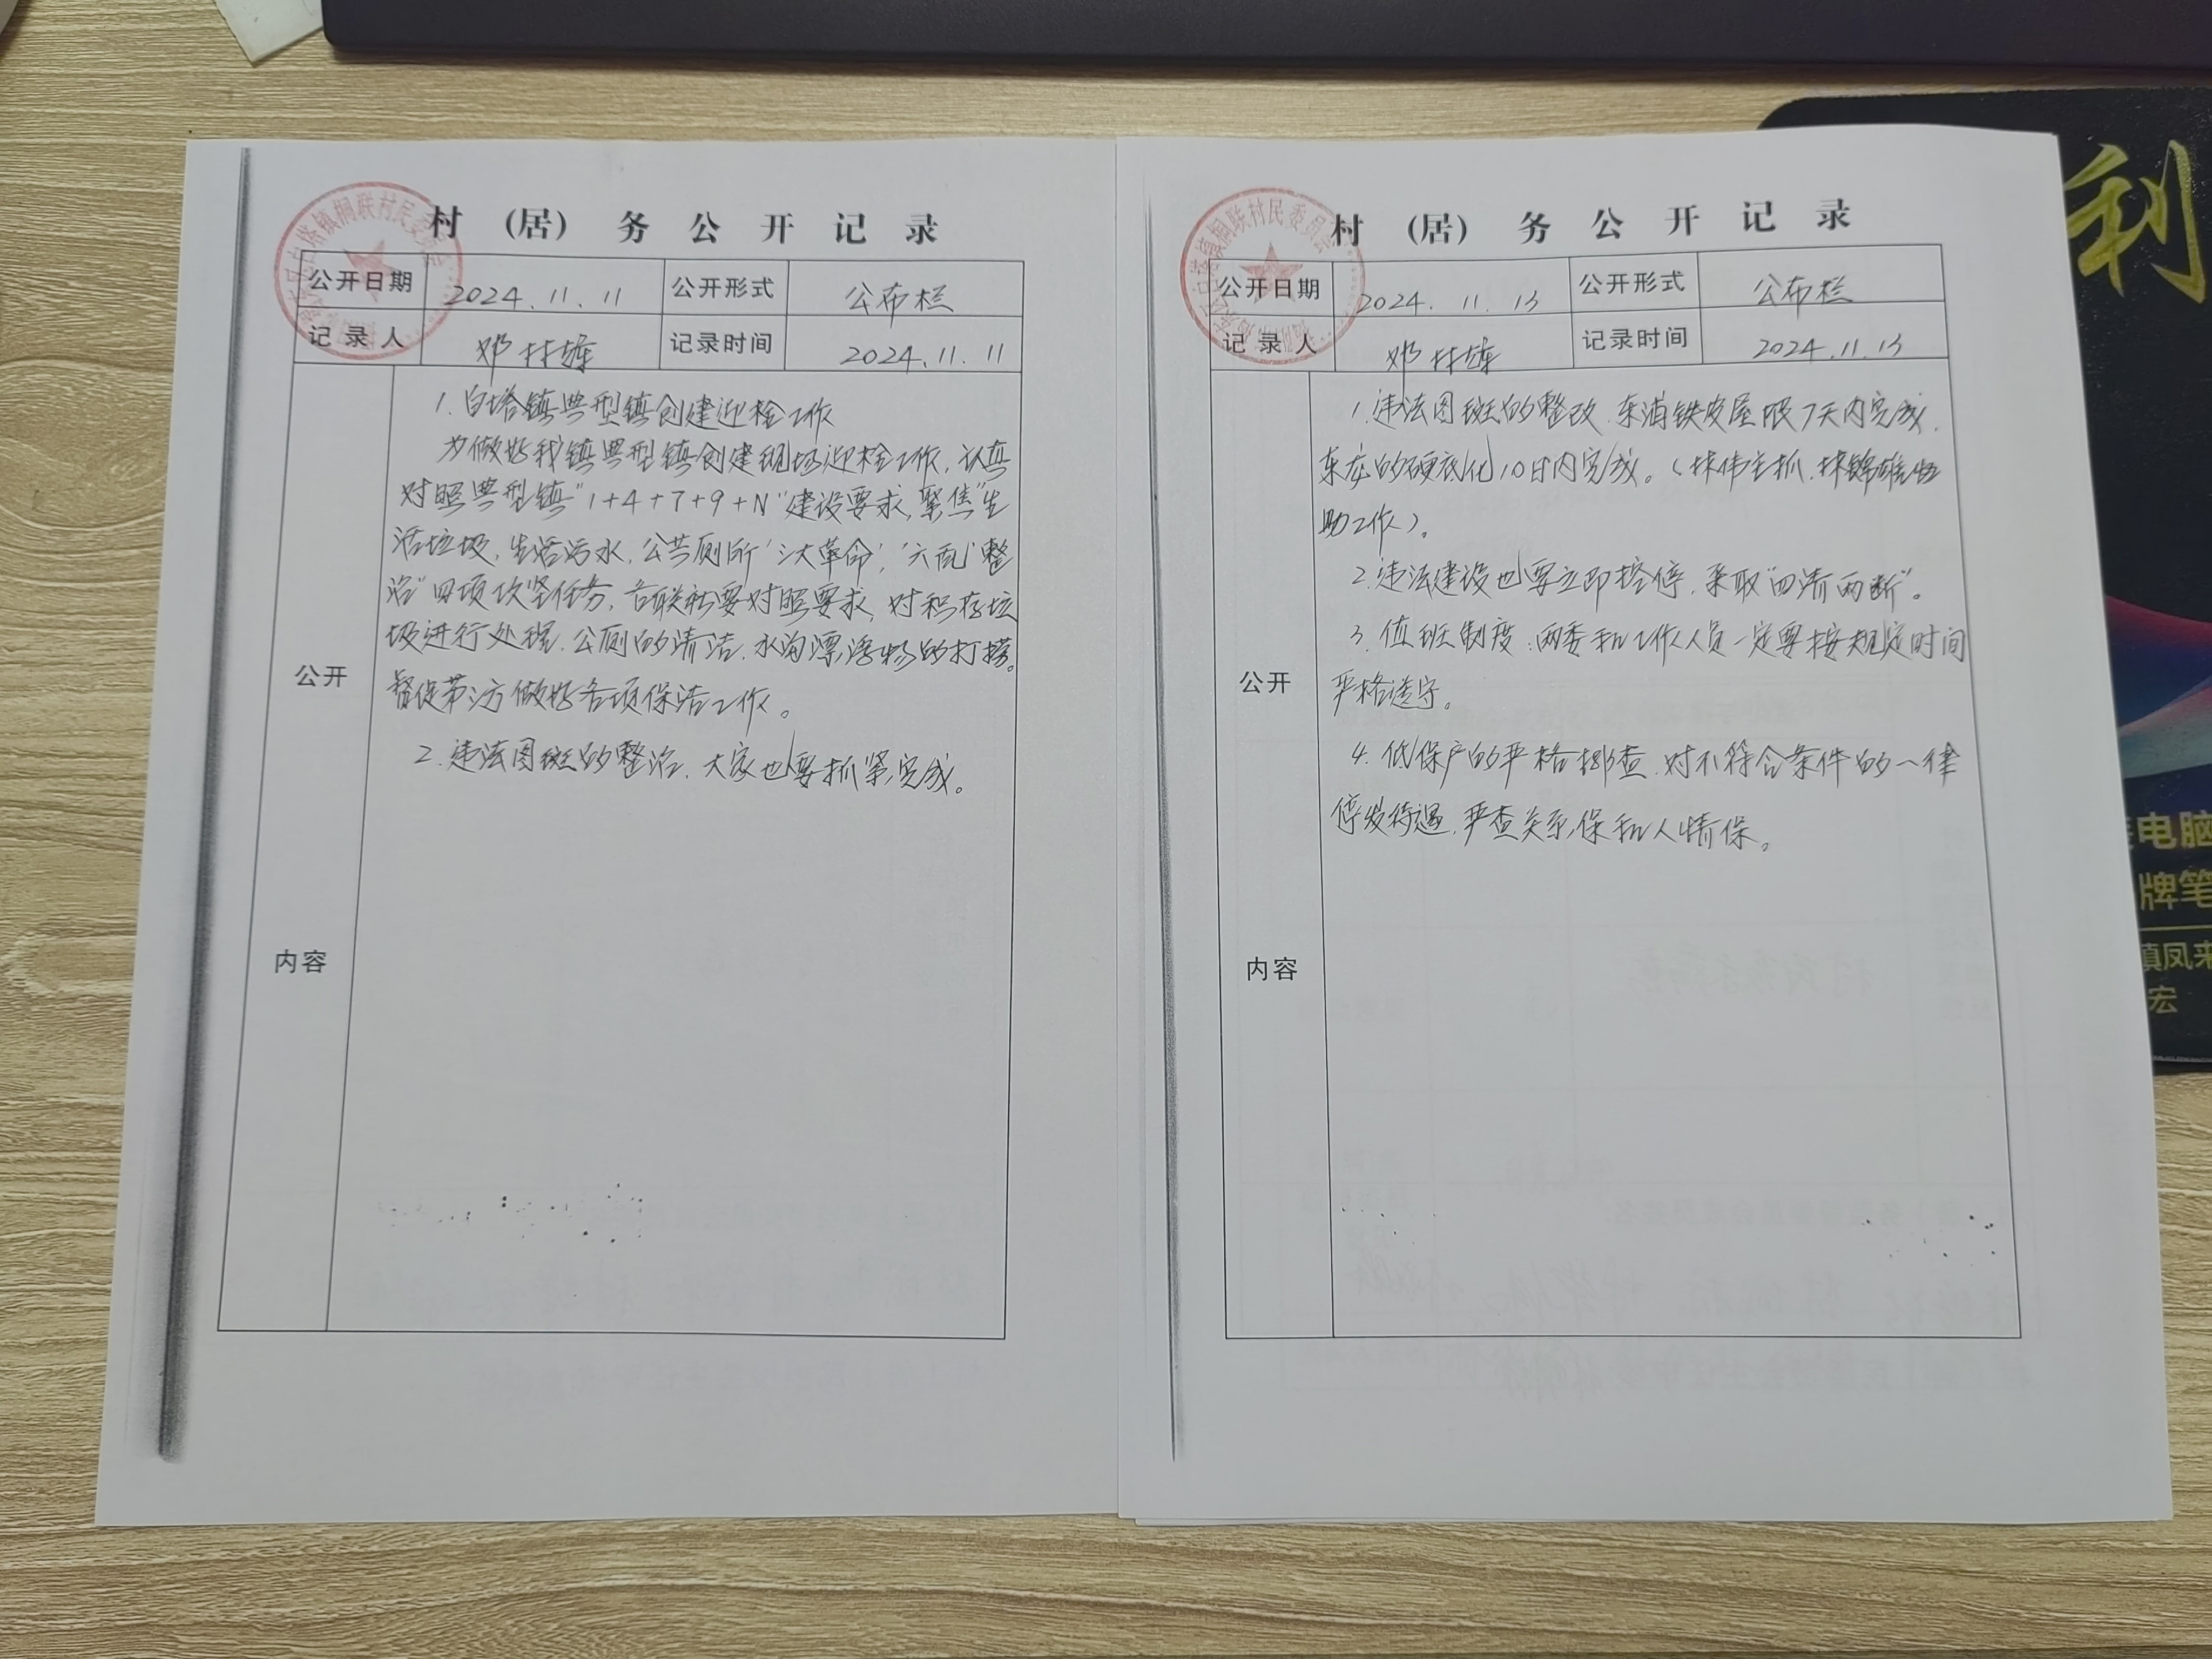 村 (居) 务 公 开 记 录
公开日期 2024.11.11 公开形式 公布栏
记 录 人 邓林雄 记录时间 2024.11.11
1.白塔镇典型镇创建迎检工作
为做好我镇典型镇创建现场迎检工作,认真
对照典型镇"1+4+7+9+N"建设要求,聚焦"生
活垃圾,生活污水,公共厕所'三大革命','六乱'整
治"四项攻坚任务,各联社要对照要求,对积存垃
圾进行处理,公厕的清洁,水沟漂浮物的打捞。
督促第三方做好各项保洁工作。
2.违法图斑的整治,大家也要抓紧完成。
公开
内容
村 (居) 务 公 开 记 录
公开日期 2024.11.13 公开形式 公布栏
记 录 人 邓林雄 记录时间 2024.11.13
1.违法图斑的整改,东浦铁皮屋限7天内完成,
东龙的硬底化10日内完成。(林伟主抓,林锦雄协
助工作)。
2.违法建设也要立即控停,采取"四清两断"。
3.值班制度:两委和工作人员一定要按规定时间
严格遵守。
4.低保户的严格排查,对不符合条件的一律
停发待遇,严查关系保和人情保。
公开
内容
利
电脑
牌笔
镇凤来
宏